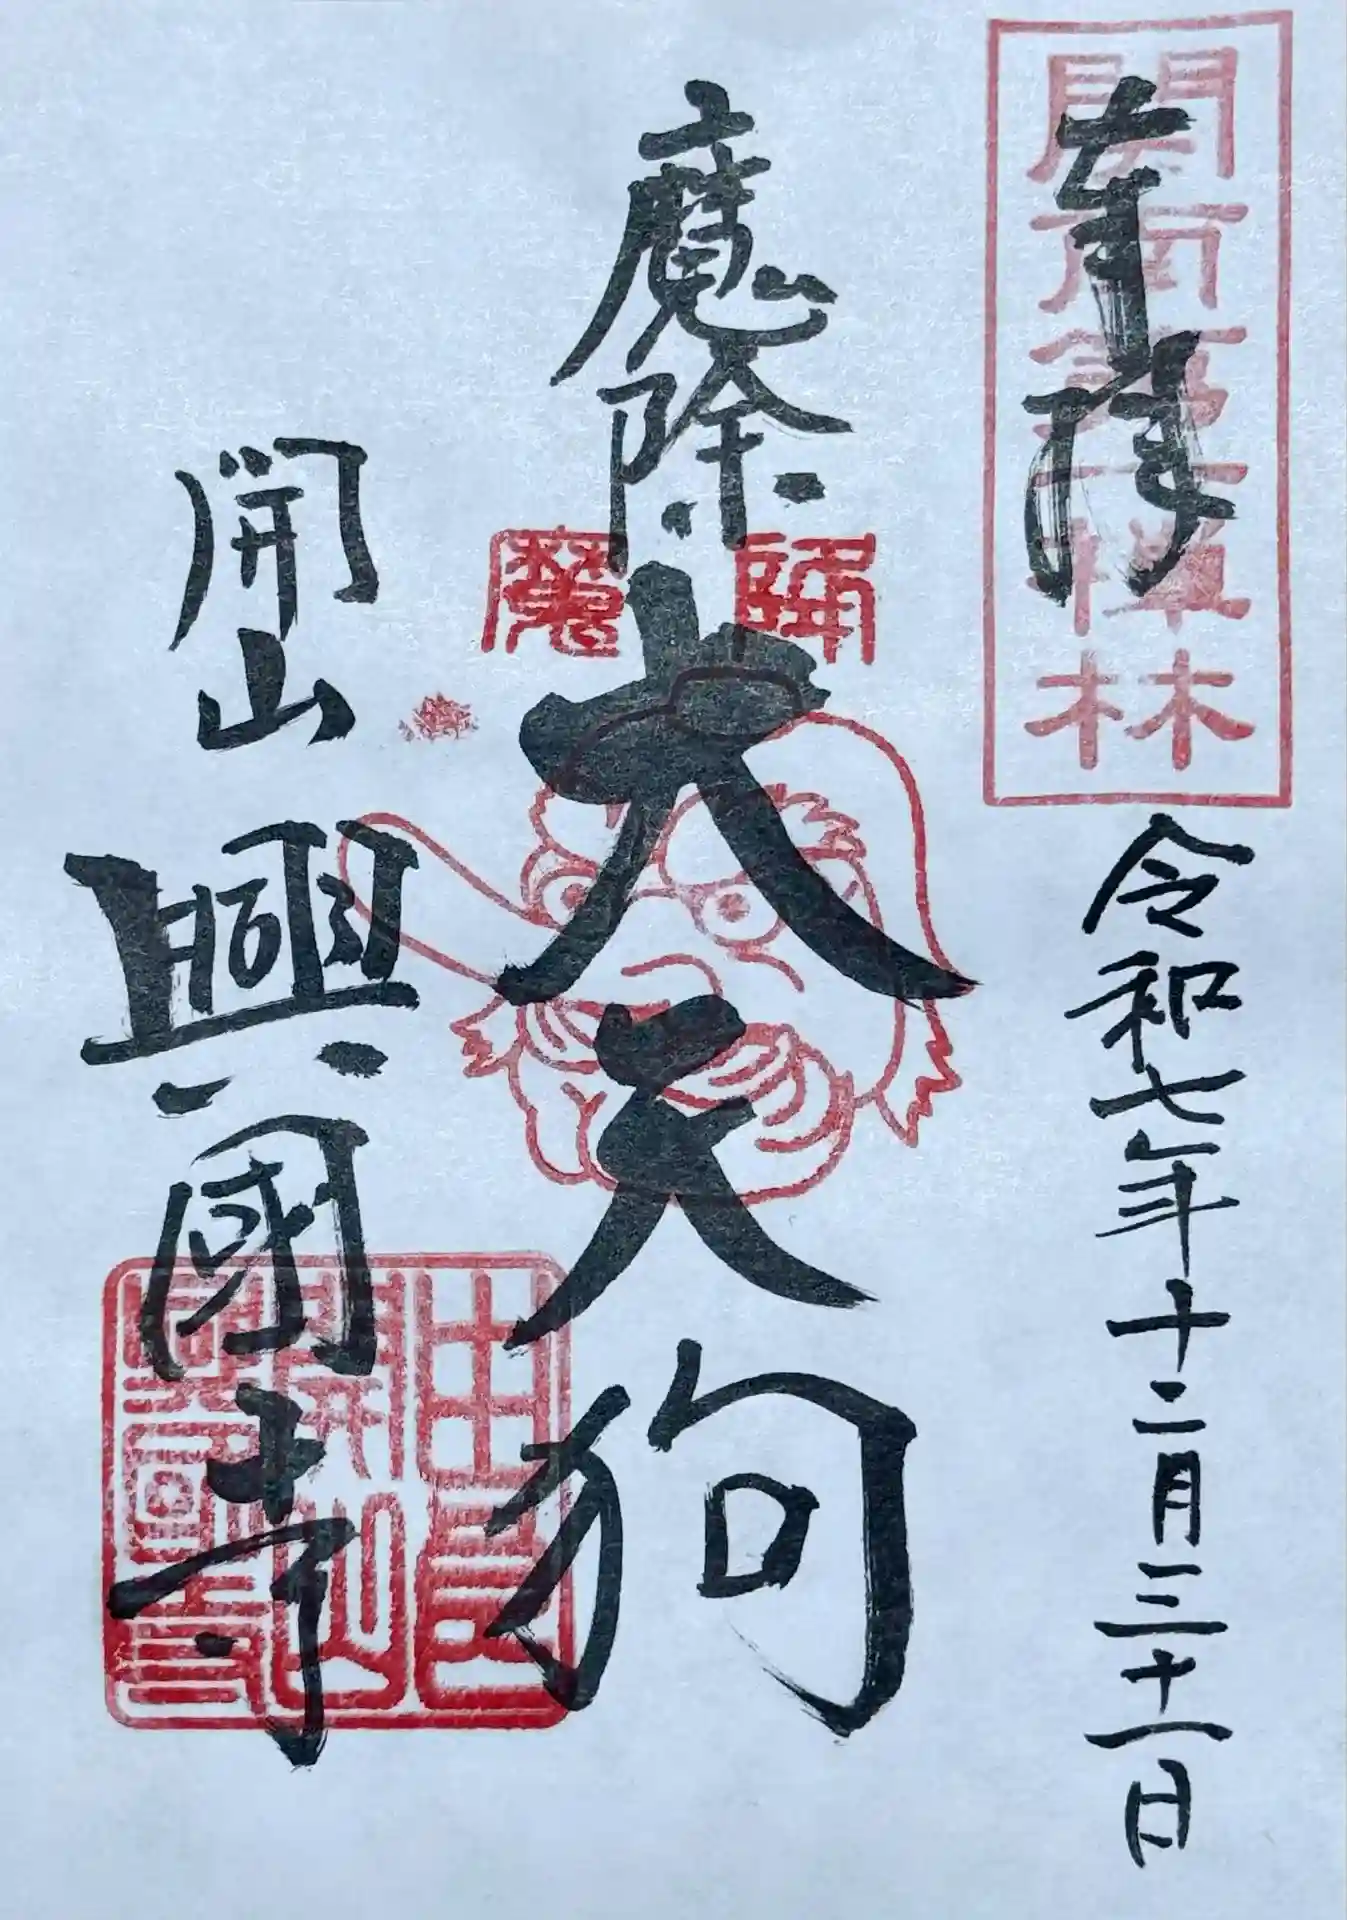 奉拝
関南第一禅林
令和七年十二月三十一日
魔除
降魔
大天狗
開山
興國寺